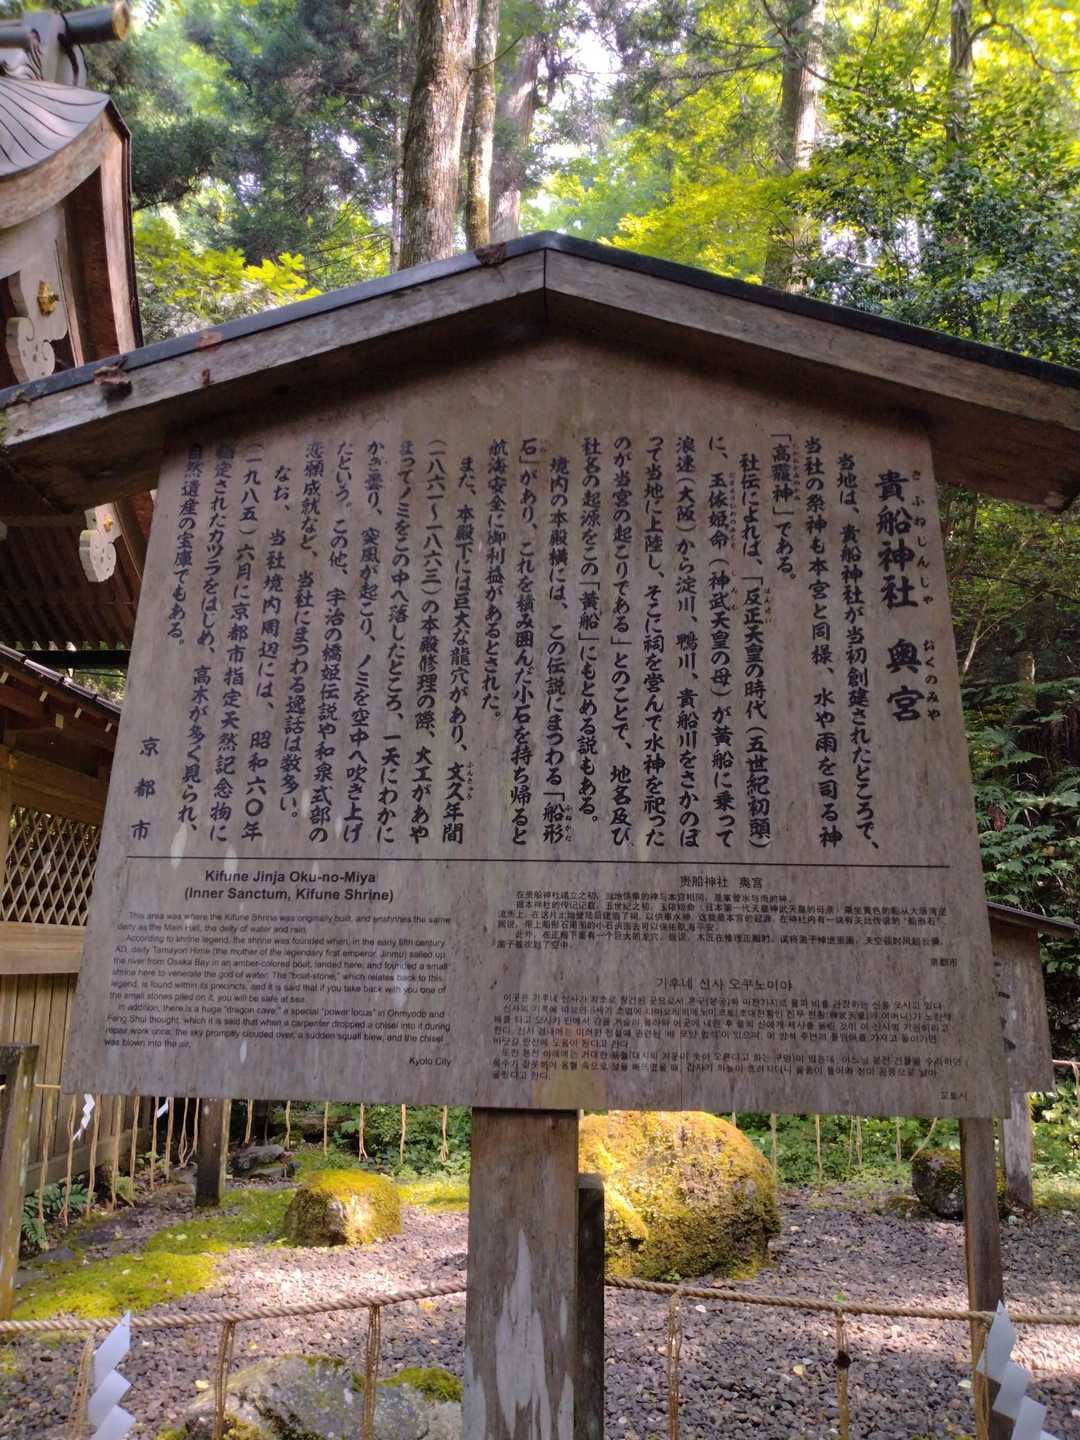 貴船神社 奥宮
きふねじんじゃ おくのみや
当地は、貴船神社が当初創建されたところで、
当社の祭神も本宮と同様、水や雨を司る神
「高龗神」である。
社伝によれば、「反正天皇の時代(五世紀初頭)
に、玉依姫命(神武天皇の母)が黄船に乗って
浪速(大阪)から淀川、鴨川、貴船川をさかのぼ
って当地に上陸し、そこに祠を営んで水神を祀った
のが当宮の起こりである」とのことで、地名及び
社名の起源をこの「黄船」にもとめる説もある。
境内の本殿横には、この伝説にまつわる「船形
石」があり、これを積み囲んだ小石を持ち帰ると
航海安全に御利益があるとされた。
また、本殿下には巨大な龍穴があり、文久年間
(一八六一〜一八六三)の本殿修理の際、大工があや
まってノミをこの中へ落したところ、一天にわかに
かき曇り、突風が起こり、ノミを空中へ吹き上げ
たという。この他、宇治の橋姫伝説や和泉式部の
恋願成就など、当社にまつわる逸話は数多い。
なお、当社境内周辺には、昭和六〇年
(一九八五)六月に京都市指定天然記念物に
指定されたカツラをはじめ、高木が多く見られ、
自然遺産の宝庫でもある。
京都市
Kifune Jinja Oku-no-Miya
(Inner Sanctum, Kifune Shrine)
This area was where the Kifune Shrine was originally built, and enshrines the same
deity as the Main Hall, the deity of water and rain.
According to shrine legend, the shrine was founded when, in the early fifth century
AD, deity Tamayori Hime (the mother of the legendary first emperor, Jinmu) sailed up
the river from Osaka Bay in an amber-colored boat, landed here, and founded a small
shrine here to venerate the god of water. The "boat-stone," which relates back to this
legend, is found within its precincts, and it is said that if you take back with you one of
the small stones piled on it, you will be safe at sea.
In addition, there is a huge "dragon cave," a special "power locus" in Onmyodo and
Feng Shui thought, which it is said that when a carpenter dropped a chisel into it during
repair work once, the sky promptly clouded over, a sudden squall blew, and the chisel
was blown into the air.
Kyoto City
贵船神社 奥宫
京都市
기후네 신사 오쿠노미야
교토시